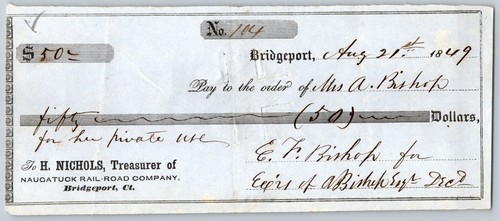 No. 104
$ 50 --
Bridgeport, Aug 21st 1849
Pay to the order of Mrs A. Bishop
fifty (50) Dollars,
for her private use
To H. NICHOLS, Treasurer of
NAUGATUCK RAIL-ROAD COMPANY,
Bridgeport, Ct.
E. F. Bishop for
Ex'rs of A Bishop Esqr Decd